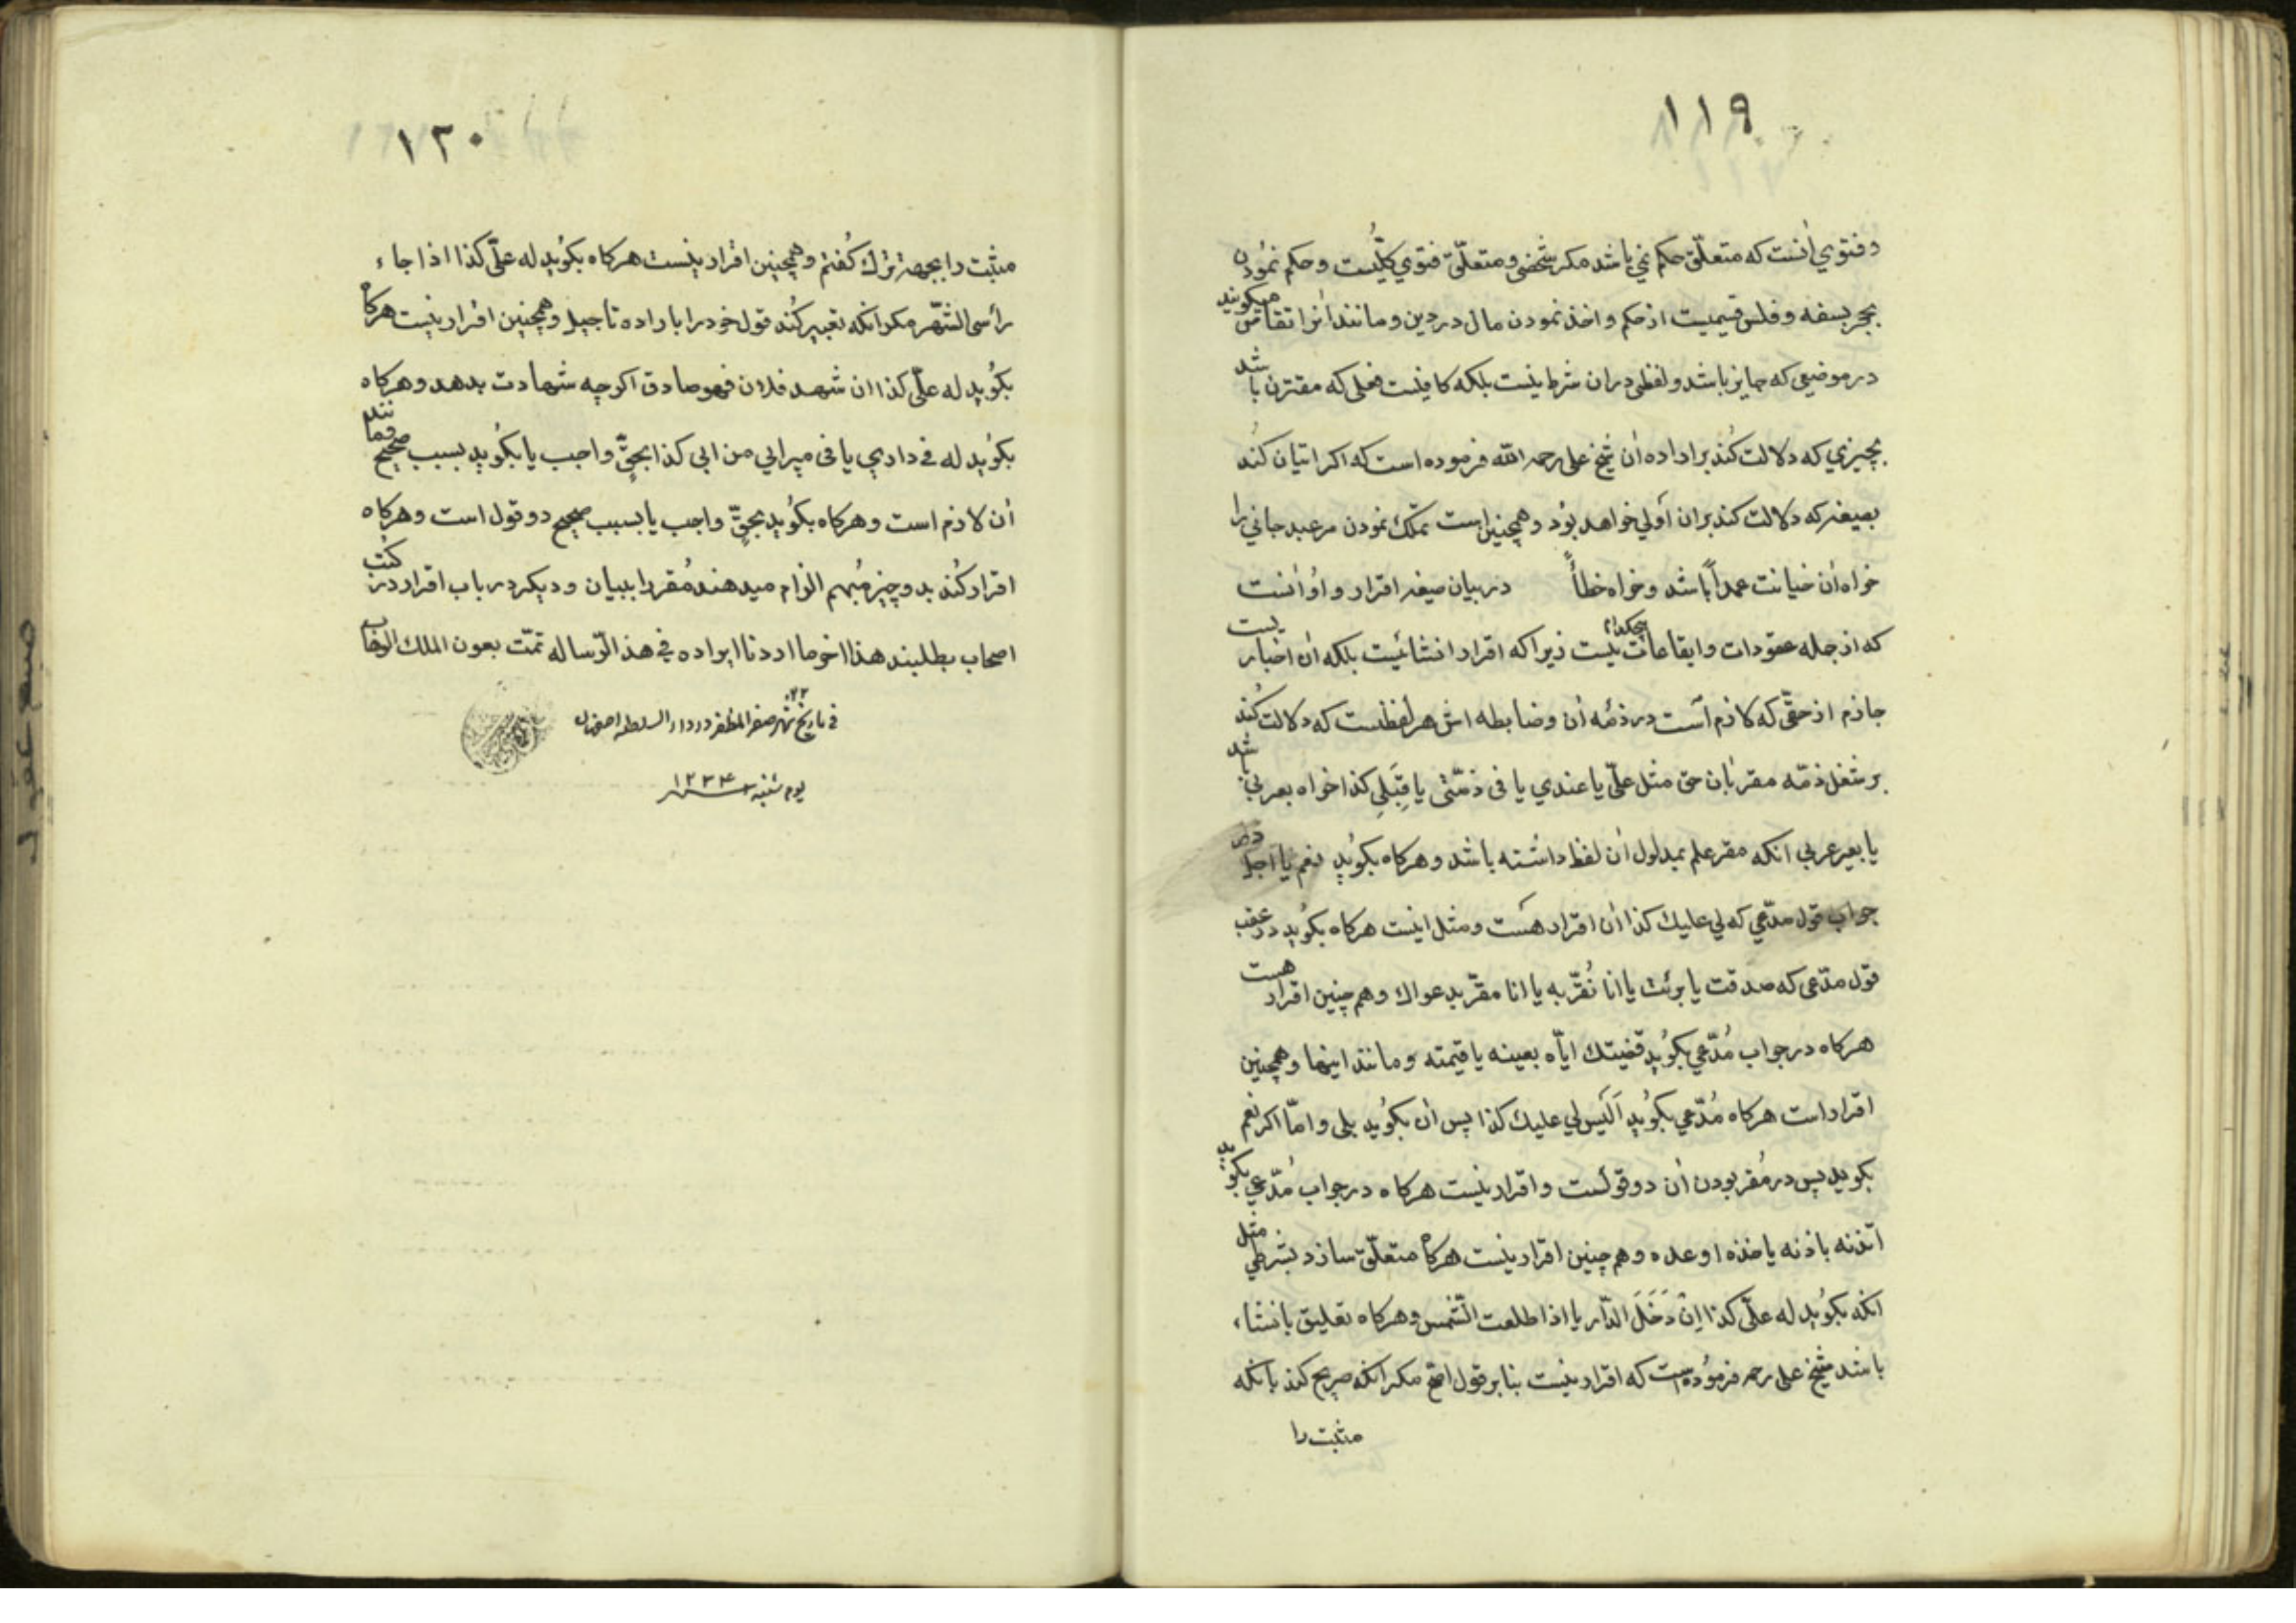 ۱۱۹
و فتوي آنست که متعلّق حکم نمي باشد مکر شخصی و متعلّق فتوي کلّیست و حکم نمُودن
بحجر بسفه و فلس قسمیست از حکم و اخذ نمودن مال در دین و مانند آنرا تقاص میکویند
در موضعی که جایز باشد و لفظی در ان شرط نیست بلکه کافیست فعلی که مقترن باشد
بچیزي که دلالت کُند بر اراده آن شیخ علی رحمه الله فرموده است که اکر اتیان کُند
بصیغه که دلالت کند بر ان أولی خواهد بوُد و همچنین است تملّک نمودن مر عبد جاني را
خواه آن خیانت عمداً باشد و خواه خطأً در بیان صیغه اقرار و او آنست
که از جمله عقودات و ایقاعات نیست زیرا که اقرار انشائیست بلکه آن اخباریست
جازم از حقّی که لازم است در ذمّه آن و ضابطه اش هر لفظیست که دلالت کُند
بر شغل ذمّه مقر بآن حق مثل علّي یا عندي یا فی ذمّتی یا قِبَلِي کذا خواه بعربي باشد
یا بغیر عربي انکه مقر علم بمدلول ان لفظ داشته باشد و هرکاه بکوُید نعم یا أجل در
جواب قول مدّعي که لي علیك کذا آن اقرار هست و مثل اینست هرکاه بکوُید در عقب
قول مدّعی که صدقت یا برئت یا انا نُقرّ به یا انا مقرّ بدعواك و هم چنین اقرار هست
هرکاه در جواب مُدّعي بکوُید قضیتك ایّاه بعینه یا قیمته و مانند اینها و همچنین
اقرار است هرکاه مُدّعي بکوُید اَلَیس لي علیك کذا پس آن بکوُید بلی و امّا اکر نعم
بکوید پس در مُقر بودن آن دو قولست و اقرار نیست هرکاه در جواب مُدّعي بکوید
اتّذنه باذنه یا خذه او عده و هم چنین اقرار نیست هرکاه متعلّق سازد بشرطي مثل
انکه بکوُید له علّي کذا اِنْ دَخَلَ الدّار یا اذا طلعت الشّمس و هرکاه تعلیق بانشاء
باشد شیخ علی رحمه فرمُوده است که اقرار نیست بنا بر قول اصّح مکر انکه صریح کند بانکه
مثبت را
۱۲۰
مثبت را بجهة تبرّك کُفتم و همچنین اقرار نیست هرکاه بکوُید له علّي کذا اذا جاء
رأس الشّهر مکر انکه تعبیر کُند قول خود را باراده تاجیل و همچنین اقرار نیست هرکاه
بکوُید له علّي کذا ان شهد فلان فهو صادق اکرچه شهادت بدهد و هرکاه
بکوُید له في داري یا فی میراثي من ابي کذا بحقٍّ واجب یا بکوُید بسبب صحیح و مانند
آن لازم است و هرکاه بکوُید بحقٍّ واجب یا بسبب صحیح دو قول است و هرکاه
اقرار کُند بدو چیز مُبهم الزام میدهند مُقر را ببیان و دیکر در باب اقرار در کتب
اصحاب بطلبند هذا اخر ما اردنا ایراده في هذ الرّساله تمّت بعون الملك الوهّاب
في تاریخ ۲۲ شهر صفر المظفر در دار السلطنه اصفهان
یوم شنبه سنه ۱۲۳۴